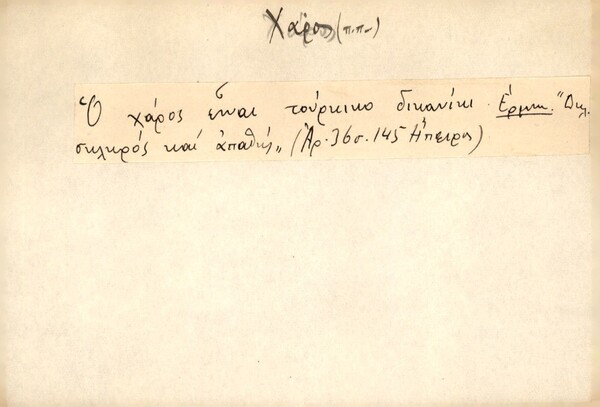 Χάρος (π.π.)
Ὁ χάρος εἶναι τούρκικο δικανίκι. Ἑρμην. "Δηλ.
σκληρός καί ἀπαθής„ (Ἀρ. 36 σ. 145 Ἤπειρος)